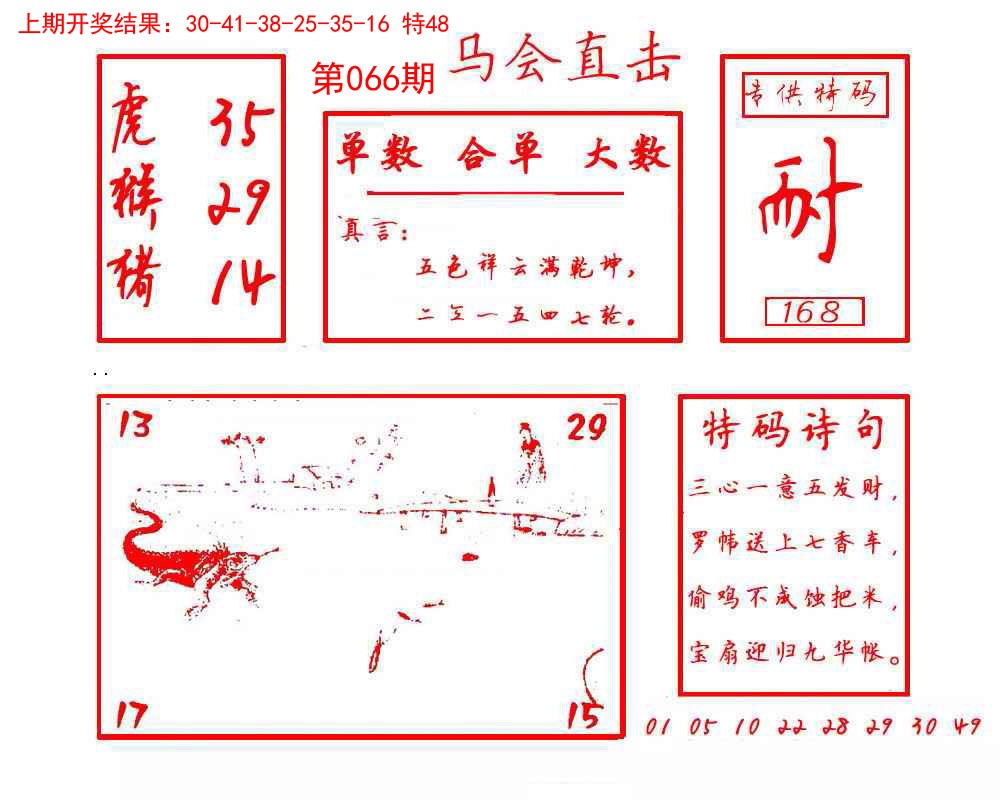 上期开奖结果：30-41-38-25-35-16 特48
第066期 马会直击
虎 35
猴 29
猪 14
单数 合单 大数
真言：
五色祥云满乾坤，
二三一五四七轮。
专供特码
耐
168
13 29
17 15
特码诗句
三心一意五发财，
罗帏送上七香车，
偷鸡不成蚀把米，
宝扇迎归九华帐。
01 05 10 22 28 29 30 49